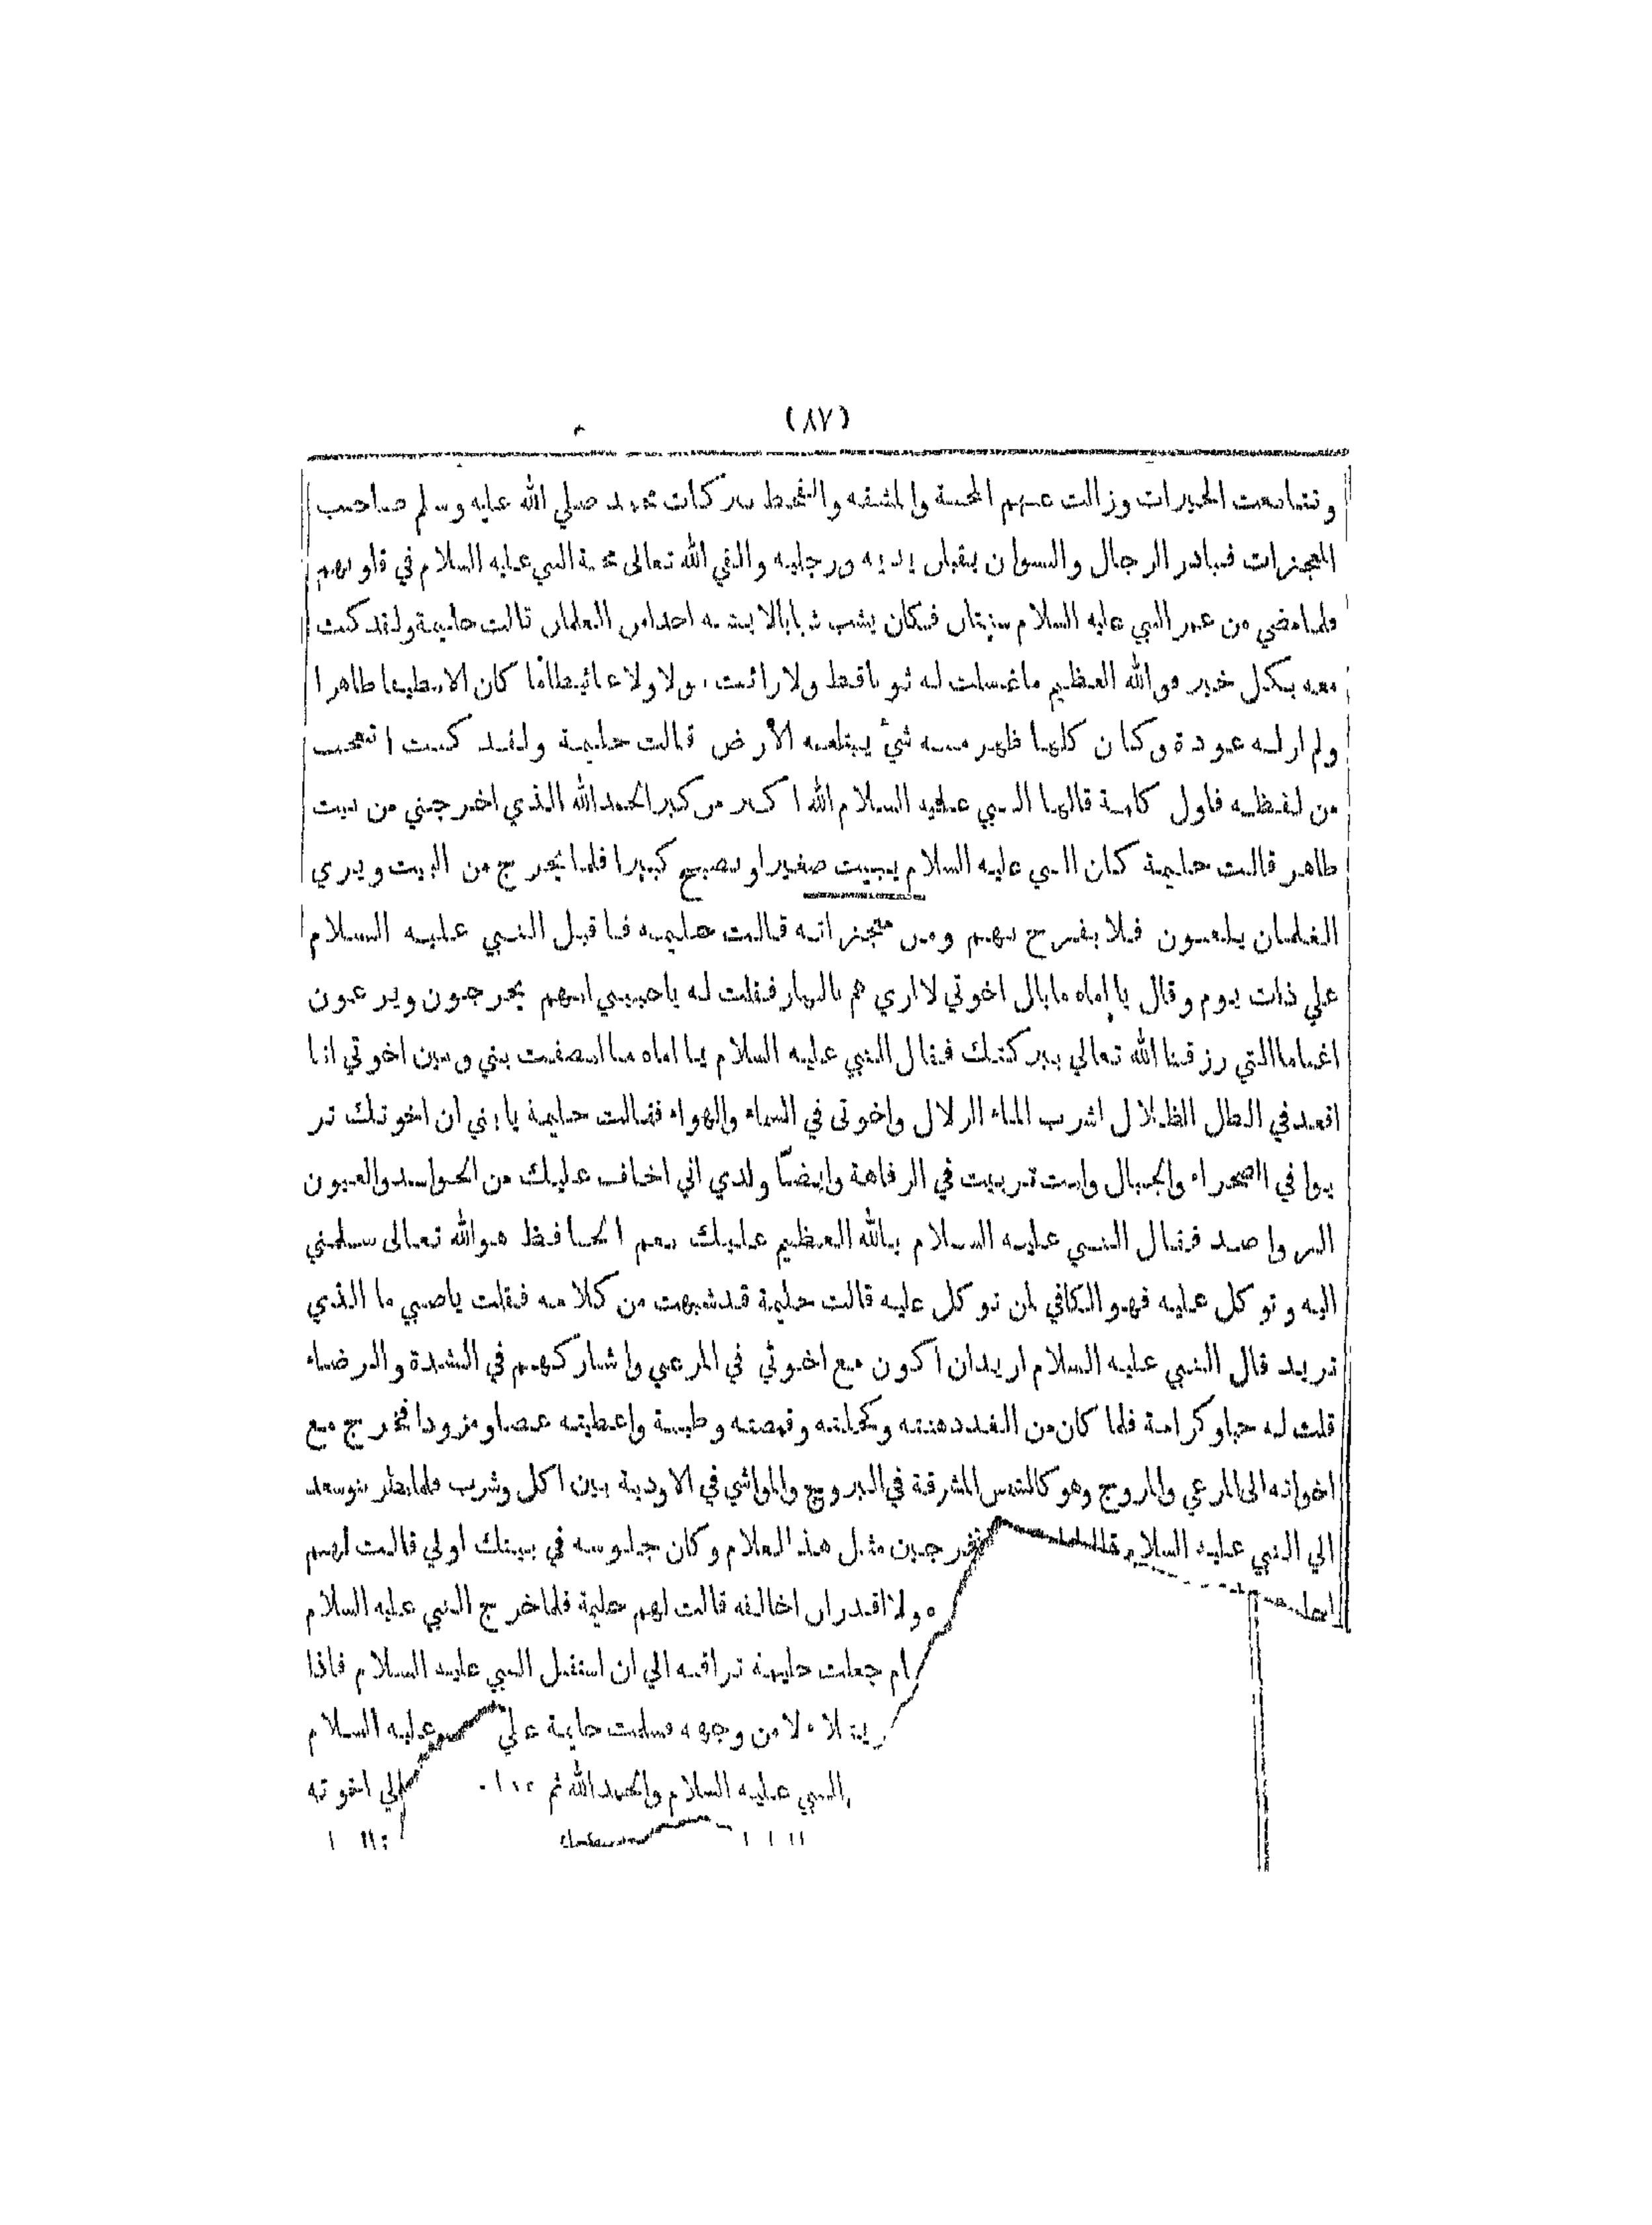 (٨٧)
وتتابعت الخيرات وزالت عنهم المحنة والمشقة والقحط ببركات محمد صلي الله عليه وسلم صاحب
المعجزات فبادر الرجال والنسوان يقبلن يديه ورجليه والقي الله تعالى محبة النبي عليه السلام في قلوبهم
فلما مضي من عمر النبي عليه السلام سنتان فكان يشب شبابا لا يشبه احدا من الغلمان قالت حليمة ولقد كنت
معه بكل خير فوالله العظيم ما غسلت له ثوبا قط ولا رائت بولا ولا غائيطا انما كان الارض طاهرا
ولم ار له عودة وكان كلما ظهر منه شئ يبتلعه الأرض قالت حليمة ولقد كنت اتعجب
من لفظه فاول كلمة قالها النبي عليه السلام الله اكبر من كبر الحمد الله الذي اخرجني من بيت
طاهر قالت حليمة كان النبي عليه السلام يبيت صغيرا ويصبح كبيرا فلما يخرج من البيت ويري
الغلمان يلعبون فلا يفرح بهم ومن معجزاته قالت حليمه فاقبل النبي عليه السلام
علي ذات يوم وقال يا اماه ما بال اخوتي لا اري هم بالنهار فقلت له يا حبيبي انهم يخرجون ويرعون
اغناما التي رزقنا الله تعالي ببركتك فقال النبي عليه السلام يا اماه ما انصفت بني وبين اخوتي انا
اقعد في الظل الظلال اشرب الماء الزلال واخوتى في السماء والهواء فقالت حليمة يا بني ان اخوتك تر
بوا في الصحراء والجبال وانت تربيت في الرفاهة وايضاً ولدي اني اخاف عليك من الحواسد والعيون
الرواصد فقال النبي عليه السلام بالله العظيم عليك نعم الحافظ هو الله تعالى سلمني
اليه وتوكل عليه فهو الكافي لمن توكل عليه قالت حليمة قد شبهت من كلامه فقلت يا صبي ما الذي
تريد قال النبي عليه السلام اريد ان اكون مع اخوتي في المرعي واشاركهم في الشدة والرضاء
قلت له حبا وكرامة فلما كان من الغد دهنته وكحلته وقمصته وطيبة واعطيته عصا ومزودا فخرج مع
اخوانه الى المرعي والمروج وهو كالشمس المشرقة في البروج والمواشي في الاودية بين اكل وشرب فلما نظر بنو سعد
الي النبي عليه السلام تخرجين مثل هذ الغلام وكان جلوسه في بيتك اولي قالت لهم
ولا اقدر ان اخالفه قالت لهم حليمة فلما خرج النبي عليه السلام
جعلت حليمة تراقبه الي ان استقبل النبي عليه السلام فاذا
من وجهه فسلمت حليمة علي عليه السلام
النبي عليه السلام والحمد الله ثم الي اخوته